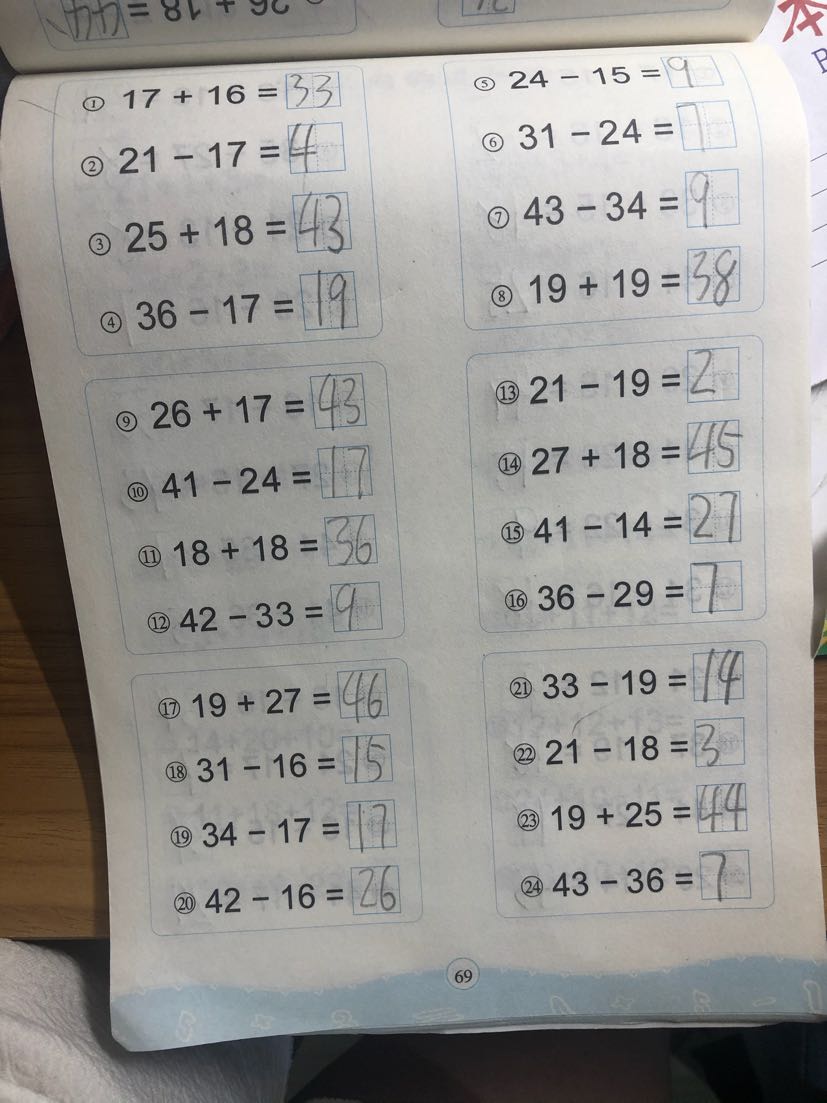 26 + 18 = 44
① 17 + 16 = 33
② 21 − 17 = 4
③ 25 + 18 = 43
④ 36 − 17 = 19
⑤ 24 − 15 = 9
⑥ 31 − 24 = 7
⑦ 43 − 34 = 9
⑧ 19 + 19 = 38
⑨ 26 + 17 = 43
⑩ 41 − 24 = 17
⑪ 18 + 18 = 36
⑫ 42 − 33 = 9
⑬ 21 − 19 = 2
⑭ 27 + 18 = 45
⑮ 41 − 14 = 27
⑯ 36 − 29 = 7
⑰ 19 + 27 = 46
⑱ 31 − 16 = 15
⑲ 34 − 17 = 17
⑳ 42 − 16 = 26
㉑ 33 − 19 = 14
㉒ 21 − 18 = 3
㉓ 19 + 25 = 44
㉔ 43 − 36 = 7
69